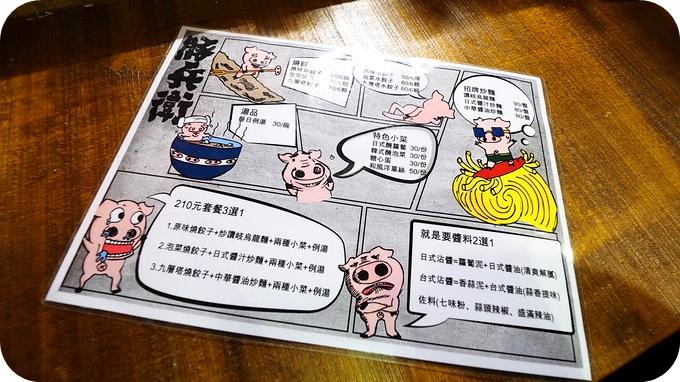 燒餃
九層塔餃子 70/6顆
原味水餃子 50/6顆
泡菜水餃子 60/6顆
九層塔水餃子 60/6顆
招牌炒麵
讚岐烏龍麵 90/盤
日式醬汁炒麵 80/盤
中華醬油炒麵 80/盤
湯品
每日例湯 30/碗
特色小菜
日式醃蘿蔔 30/份
韓式醃泡菜 30/份
糖心蛋 30/份
和風洋蔥絲 50/份
210元套餐3選1
1.原味燒餃子+炒讚岐烏龍麵+兩種小菜+例湯
2.泡菜燒餃子+日式醬汁炒麵+兩種小菜+例湯
3.九層塔燒餃子+中華醬油炒麵+兩種小菜+例湯
就是要醬料2選1
日式沾醬=蘿蔔泥+日式醬油(清爽解膩)
台式沾醬=香蒜泥+台式醬油(蒜香提味)
佐料(七味粉、蒜頭辣椒、盛滿辣油)